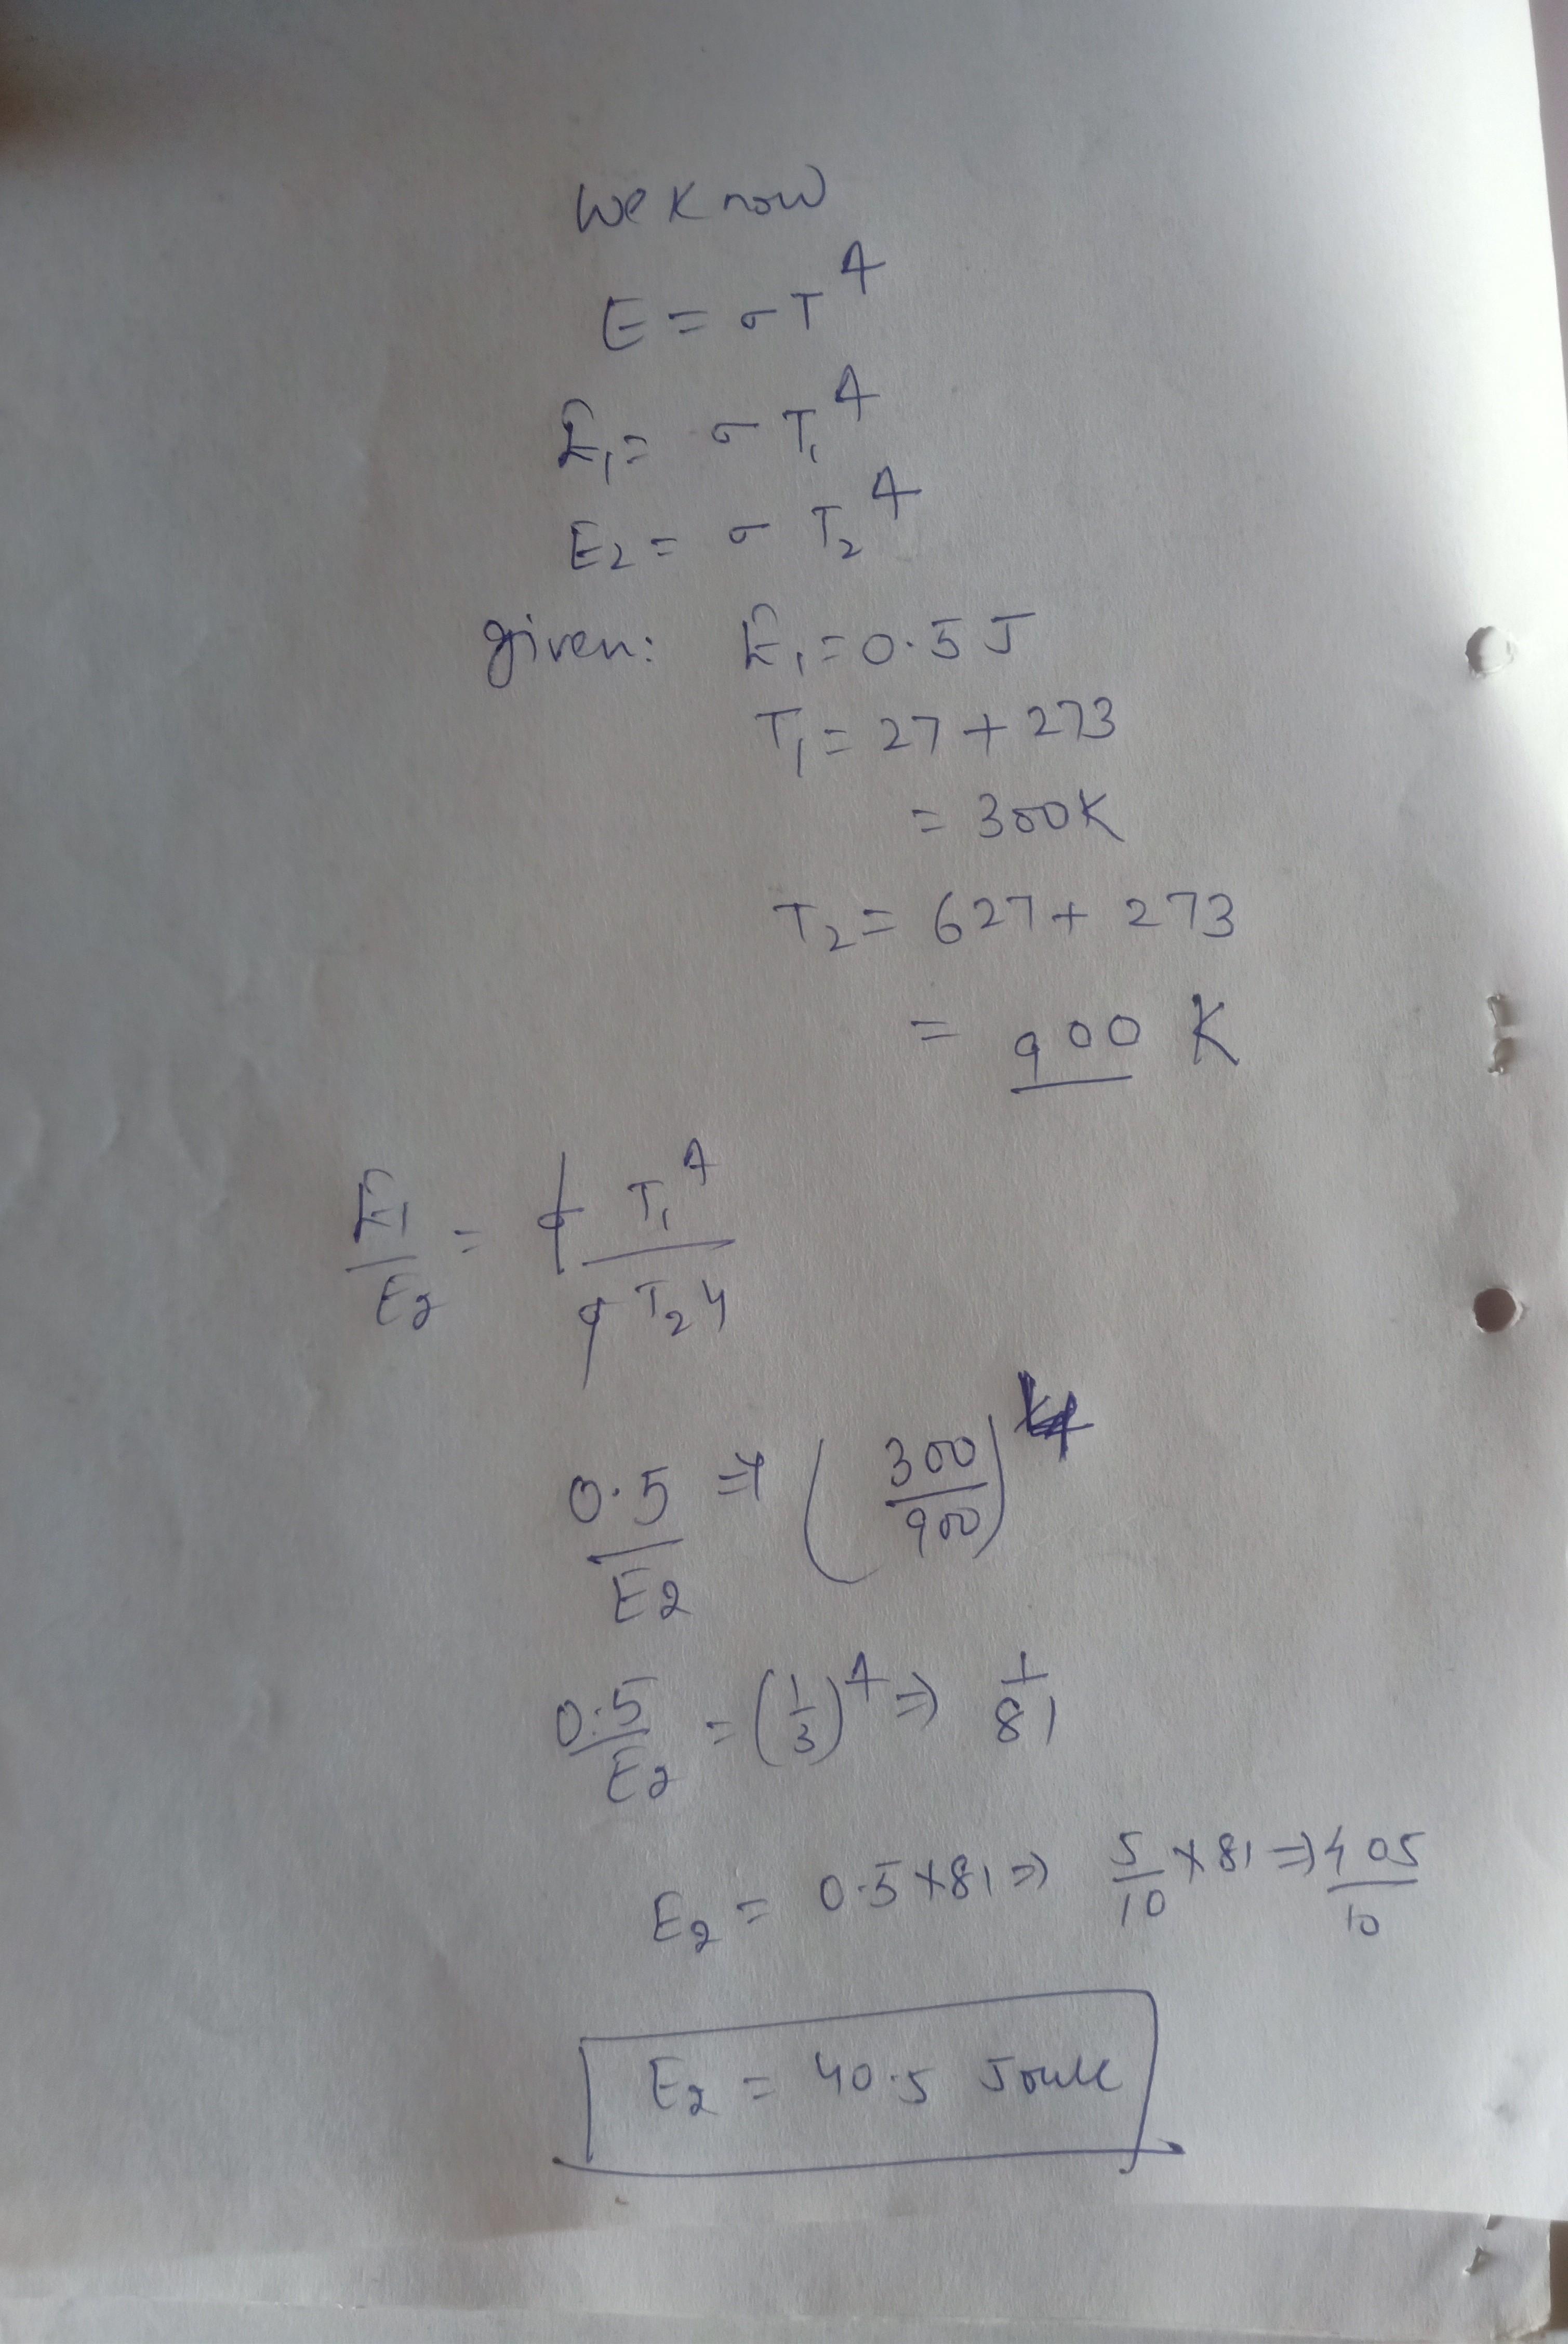 We know
E = σT⁴
E₁ = σ T₁⁴
E₂ = σ T₂⁴
given: E₁ = 0.5 J
T₁ = 27 + 273
= 300K
T₂ = 627 + 273
= 900 K
E₁/E₂ = σ T₁⁴ / σ T₂⁴
0.5/E₂ ⇒ (300/900)⁴
0.5/E₂ = (1/3)⁴ ⇒ 1/81
E₂ = 0.5 × 81 ⇒ 5/10 × 81 ⇒ 405/10
E₂ = 40.5 Joule